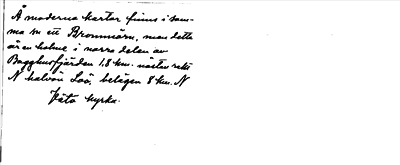 Å moderna kartor finns i sam-
ma vik ett Brommörn, men detta
är en holme i norra delen av
Bagghusfjärden 1,8 km. nästan rakt
N halvön Loö, belägen 8 km. N
Väta kyrka.